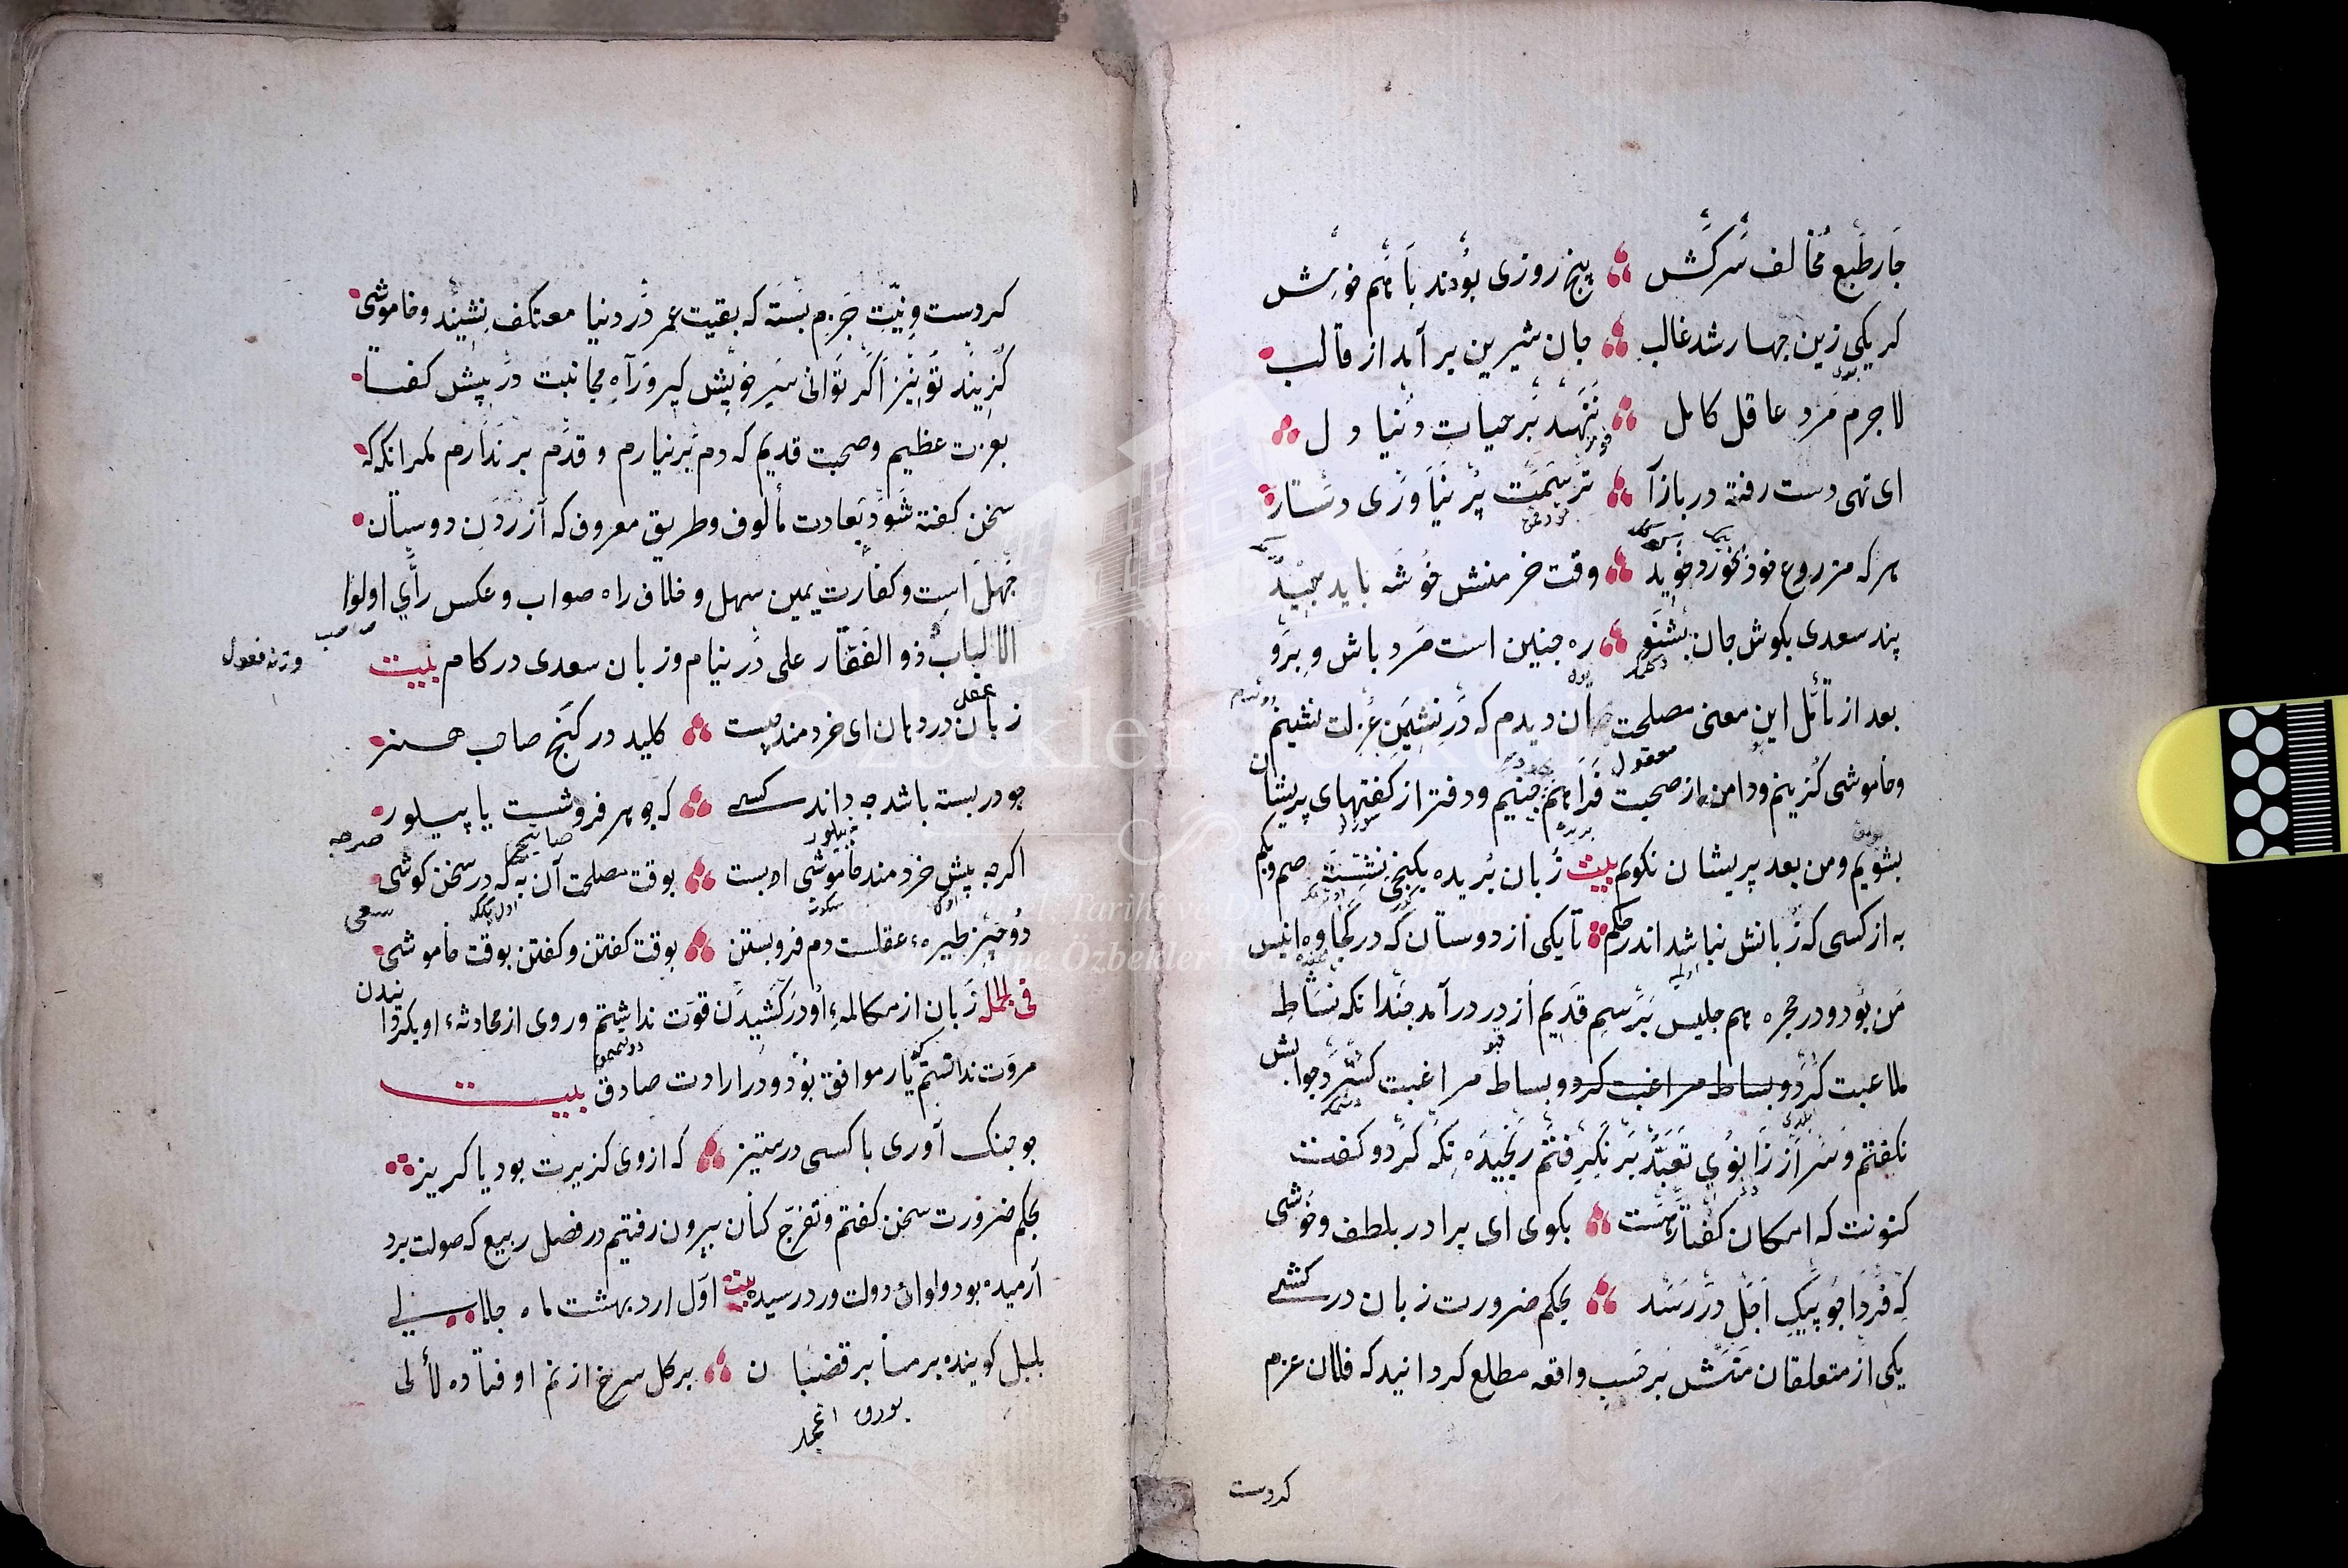 چار طبع مخالف سرکش پنج روزی بودند باهم خوش
کر یکی زین چهار شد غالب جان شیرین بر آید از قالب
لا جرم مرد عاقل کامل ننهد بر حیات دنیا دل
ای تهی دست رفته در بازار ترسمت پر نیاوری دستار
هر که مزروع خود بخورد خوید وقت خرمنش خوشه باید چید
پند سعدی بکوش جان بشنو ره چنین است مرد باش و برو
بعد از تأمل این معنی مصلحت آن دیدم که در نشیمن عزلت نشینم
و خاموشی کزینم و دامن از صحبت فراهم چینم و دفتر از کفتهای پریشان
بشویم و من بعد پریشان نکویم بیت زبان بریده بکنجی نشسته صم و بکم
به از کسی که زبانش نباشد اندر حکم تا یکی از دوستان که در کجاوه انیس
من بود و در حجره هم جلیس برسم قدیم از در در آمد چندانکه نشاط
ملاعبت کرد و بساط مراغبت کرد و بساط مراغبت کسترد جوابش
نکفتم و سر از زانوی تعبد بر نکرفتم رنجیده نکه کرد و کفت
کنونت که امکان کفتار هست بکوی ای برادر بلطف و خوشی
که فردا چو پیک اجل در رسد بحکم ضرورت زبان در کشی
یکی از متعلقان منش بر حسب واقعه مطلع کردانید که فلان عزم
کردست
کردست و نیت جزم بسته که بقیت عمر در دنیا معتکف نشیند و خاموشی
کزیند تو نیز اکر توانی سر خویش کیر و راه مجانبت در پیش کفتا
بعزت عظیم و صحبت قدیم که دم بر نیارم و قدم بر ندارم مکر انکه که
سخن کفته شود بعادت مألوف و طریق معروف که آزردن دوستان
جهل است و کفارت یمین سهل و خلاف راه صواب و عکس رأی اولوا
الالباب ذو الفقار علی در نیام و زبان سعدی در کام بیت
وزنه مفعول
زبان در دهان ای خردمند چیست کلید در کنج صاحب هنر
چو در بسته باشد چه داند کسی که جوهر فروشست یا پیلور
اکرچه پیش خردمند خاموشی ادبست بوقت مصلحت آن به که در سخن کوشی
دو چیز طیرهء عقلست دم فرو بستن بوقت کفتن و کفتن بوقت خاموشی
فی الجمله زبان از مکالمهء او در کشیدن قوت نداشتم و روی از محادثهء او بکردانیدن
مروت نداشتم که یار موافق بود و در ارادت صادق بیت
چو جنک آوری با کسی در ستیز که از وی کزیرت بود یا کریز
بحکم ضرورت سخن کفتم و تفرج کنان بیرون رفتیم در فصل ربیع که صولت برد
آرمیده بود و اوان دولت ورد رسیده بیت اول اردبهشت ماه جلالی
بلبل کوینده بر منابر قضبان بر کل سرخ از نم اوفتاده لألی